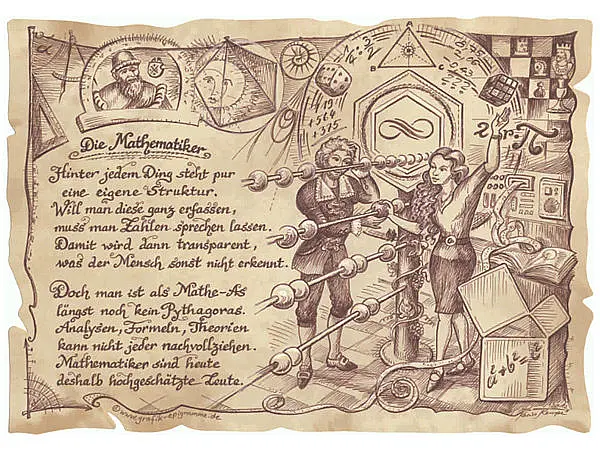 Die Mathematiker
Hinter jedem Ding steht pur
eine eigene Struktur.
Will man diese ganz erfassen,
muss man Zahlen sprechen lassen.
Damit wird dann transparent,
was der Mensch sonst nicht erkennt.
Doch man ist als Mathe-As
längst noch kein Pythagoras.
Analysen, Formeln, Theorien
kann nicht jeder nachvollziehen.
Mathematiker sind heute
deshalb hochgeschätzte Leute.
©www.grafik-epigramme.de
α
419
+564
+375
B
2rπ
a²+b²=